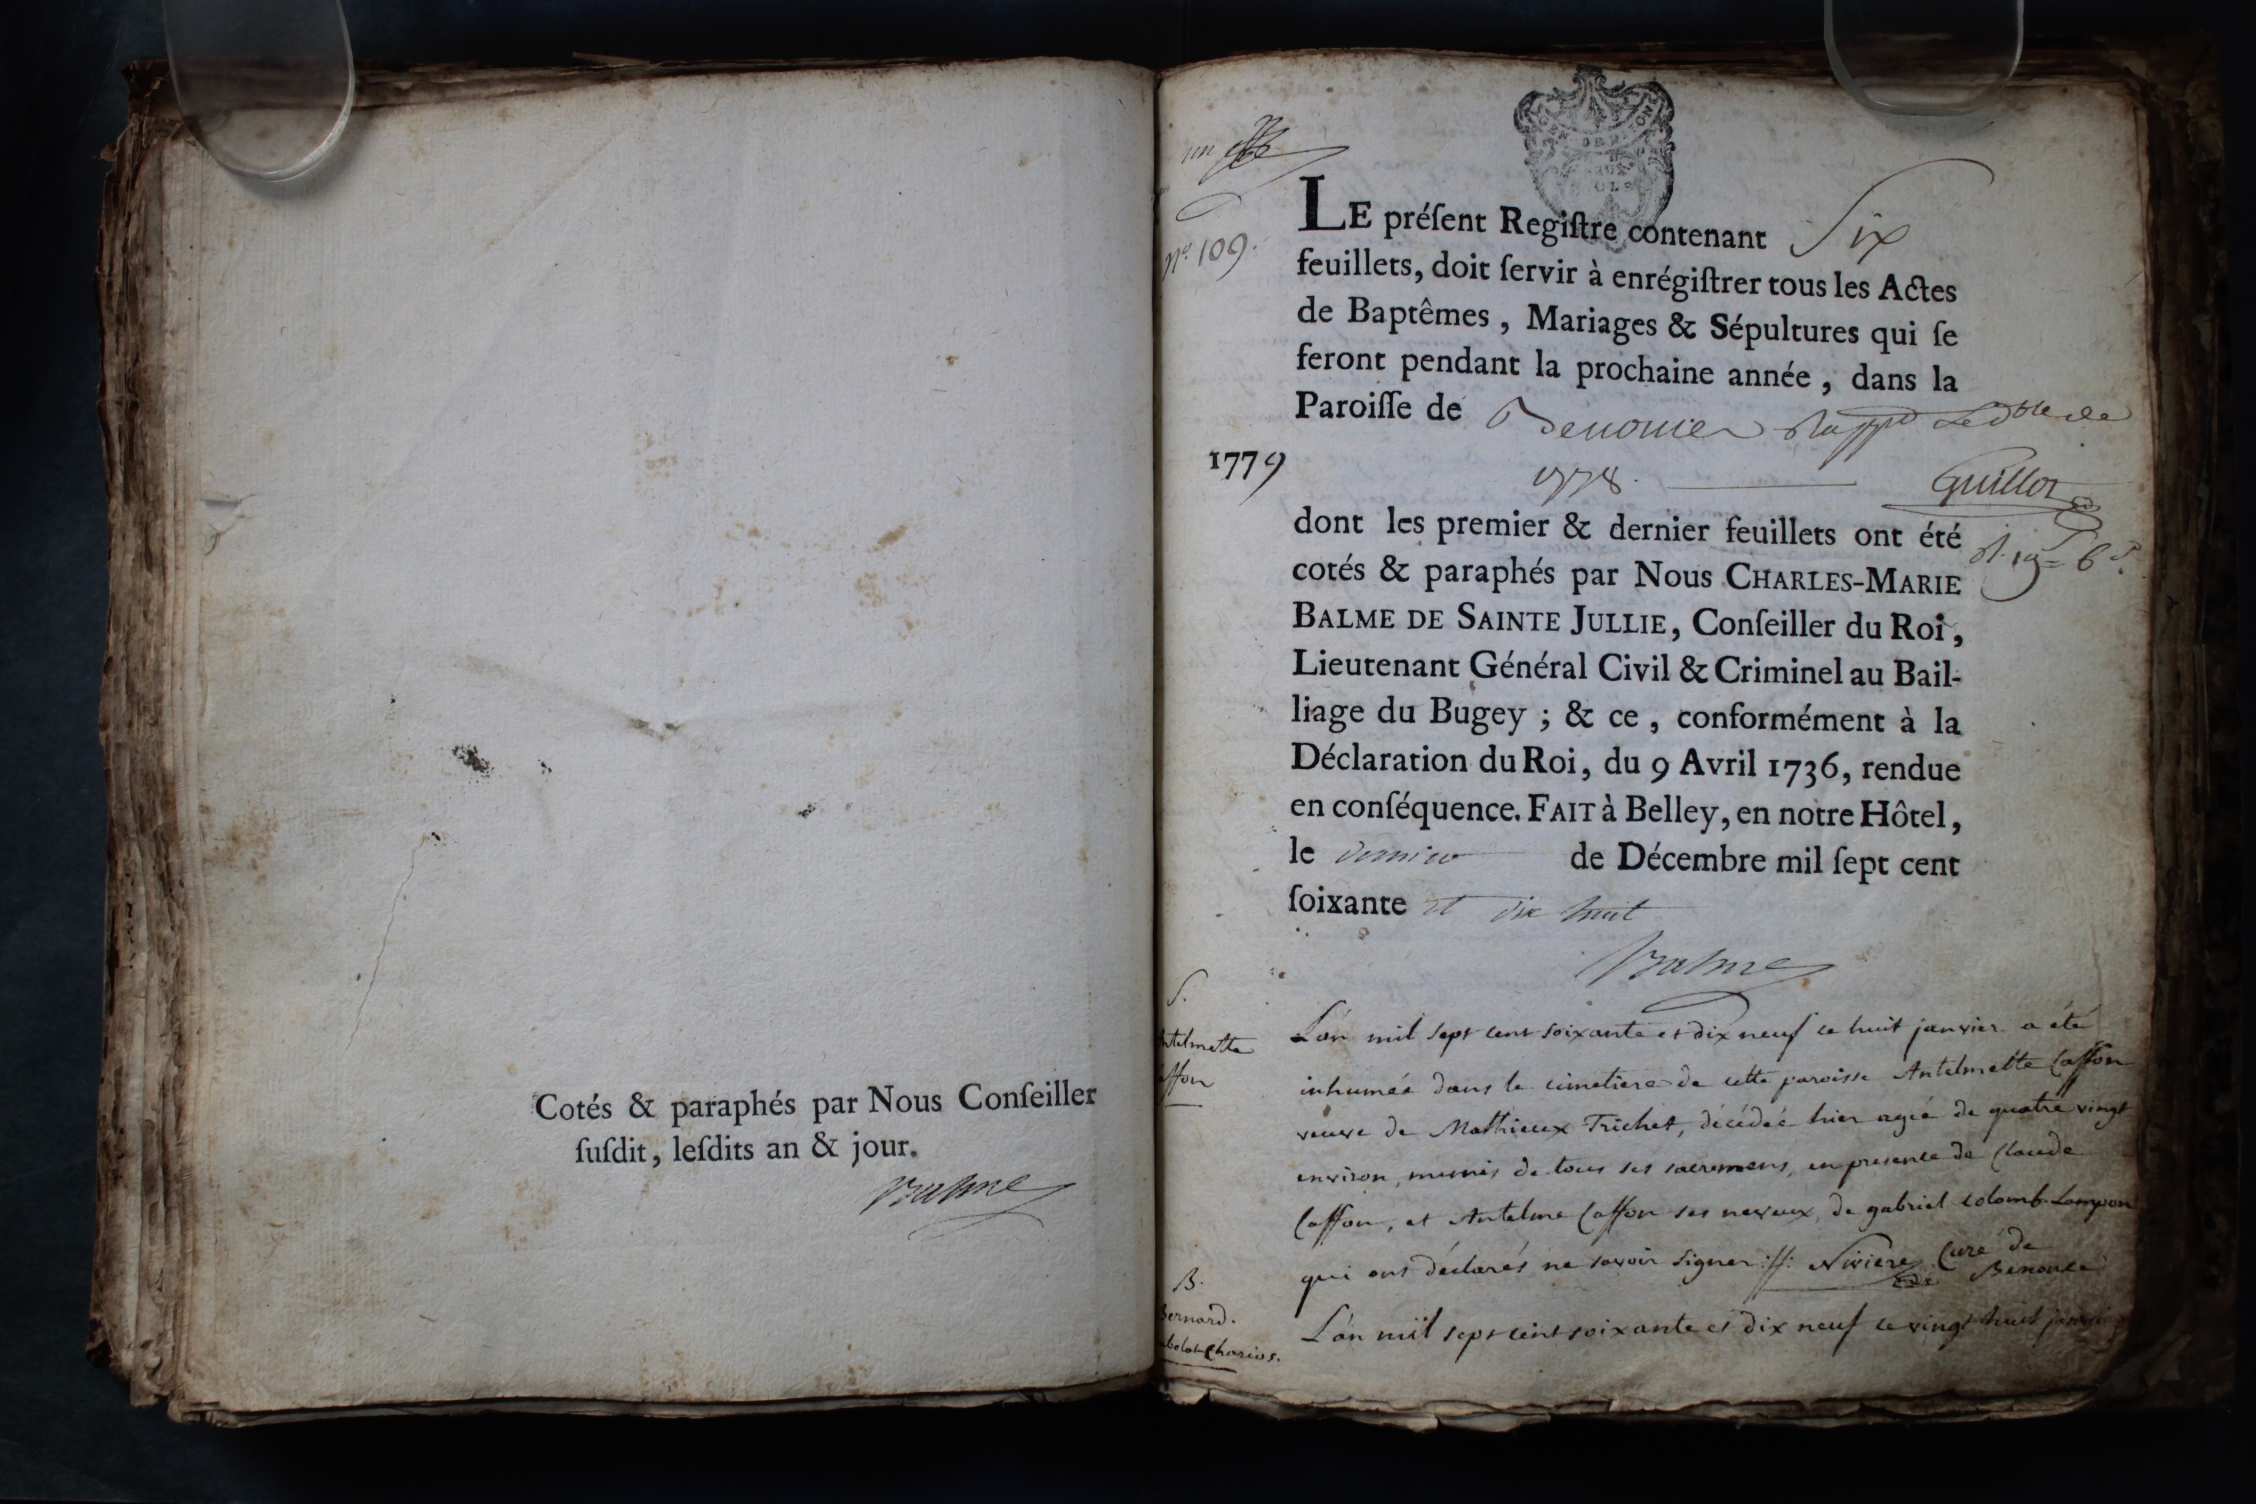 Cotés & paraphés par Nous Conſeiller
ſuſdit, leſdits an & jour.
Balme
un
GEN DE DIJON
N.º 109.
LE préſent Regiſtre contenant Six
feuillets, doit ſervir à enrégiſtrer tous les Actes
de Baptêmes, Mariages & Sépultures qui ſe
feront pendant la prochaine année, dans la
Paroiſſe de Benonce
1779
1778.
Guillot
dont les premier & dernier feuillets ont été
cotés & paraphés par Nous CHARLES-MARIE
BALME DE SAINTE JULLIE, Conſeiller du Roi,
Lieutenant Général Civil & Criminel au Bail-
liage du Bugey; & ce, conformément à la
Déclaration du Roi, du 9 Avril 1736, rendue
en conſéquence. FAIT à Belley, en notre Hôtel,
le dernier de Décembre mil ſept cent
ſoixante et dix huit
Balme
S.
Antelmette
Caffon
L'an mil sept cent soixante et dix neuf ce huit janvier a été
inhumée dans le cimetiere de cette paroisse Antelmette Caffon
veuve de Mathieux Trichet, décédeé hier agée de quatre vingt
environ, munie de tous ses sacremens, en presence de Claude
Caffon, et Antelme Caffon ses neveux, de gabriel colomb Lampon
qui ont déclarés ne savoir signer Niviere Curé de
Benonce
B.
Bernard.
L'an mil sept cent soixante et dix neuf ce vingt huit janvier